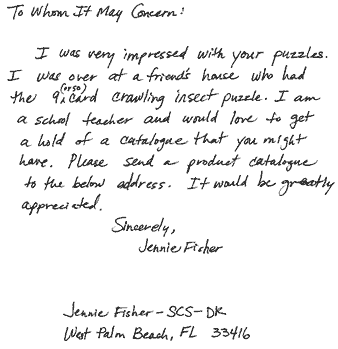 To Whom It May Concern:
I was very impressed with your puzzles.
I was over at a friend's house who had
the 9 (or so) card crawling insect puzzle. I am
a school teacher and would love to get
a hold of a catalogue that you might
have. Please send a product catalogue
to the below address. It would be greatly
appreciated.
Sincerely,
Jennie Fisher
Jennie Fisher - SCS - DK
West Palm Beach, FL 33416